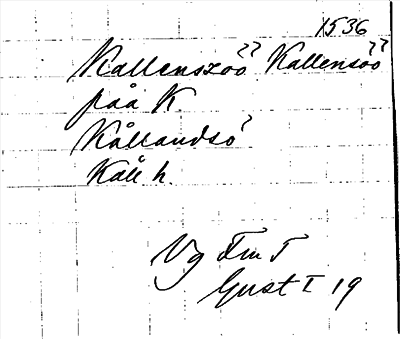 1536
Kallenszöö Kallensöö
påå K.
Kållandsö
Kåll h.
Vg Fm T
Gust I 19